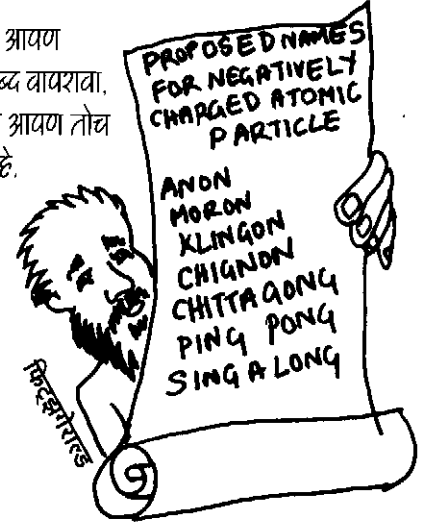 आपण
ब्द वापरावा.
आपण तोच
हे.
PROPOSED NAMES
FOR NEGATIVELY
CHARGED ATOMIC
PARTICLE
ANON
MORON
KLINGON
CHIGNON
CHITTAGONG
PING PONG
SING A LONG
फिट्झगेराल्ड